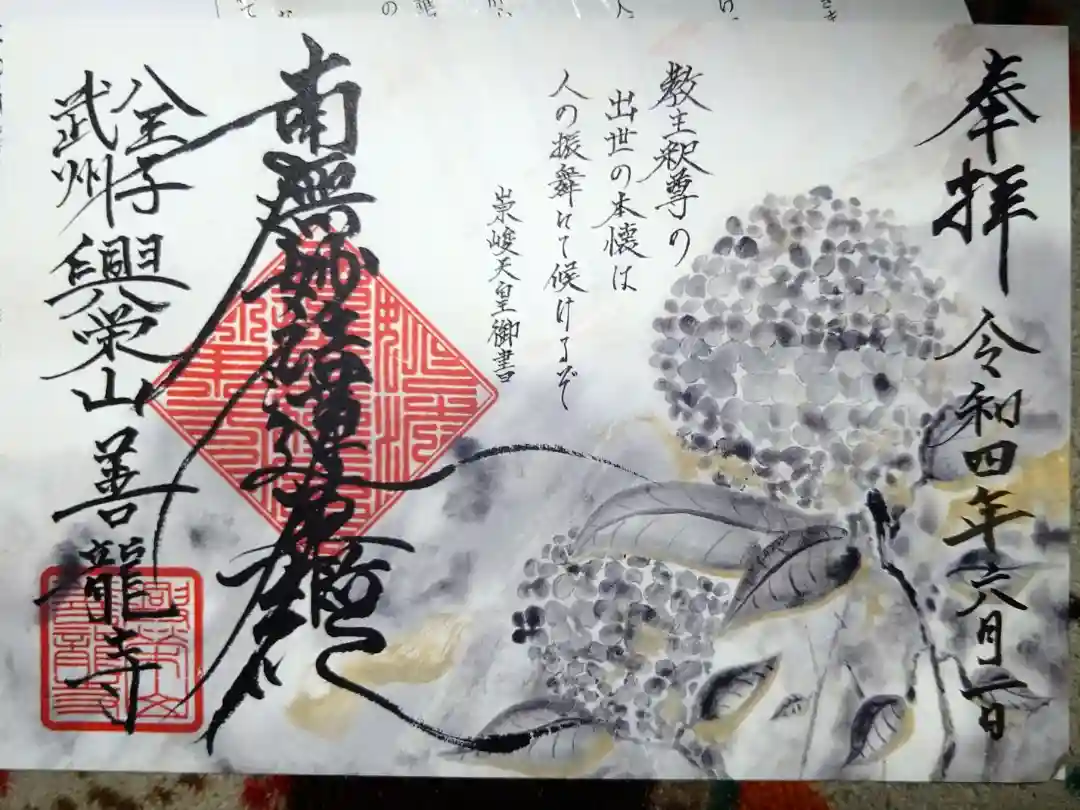 奉拝 令和四年六月二日
教主釈尊の
出世の本懐は
人の振舞にて候けるぞ
崇峻天皇御書
南無妙法蓮華経
武州
八王子
興栄山 善龍寺